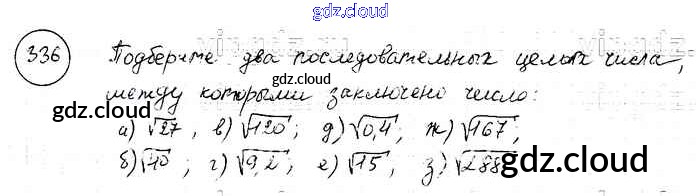 gdz.cloud
336 Подберите два последовательных целых числа,
gdz.cloud
между которыми заключено число:
gdz.cloud
а) √27, в) √120; д) √0,4; ж) √167;
gdz.cloud
б) √40; г) √9,2; е) √15; з) √288
gdz.cloud